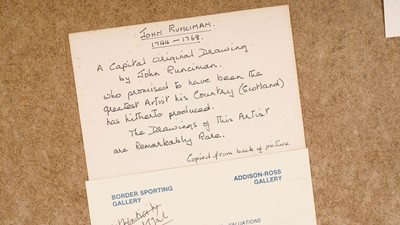 JOHN RUNCIMAN.
1744 – 1768.
A Capital Original Drawing
by John Runciman.
who promised to have been the
greatest Artist his Country (Scotland)
has hitherto produced.
The Drawings of this Artist
are Remarkably Rare.
Copied from back of picture
BORDER SPORTING
GALLERY
ADDISON-ROSS
GALLERY
VALUATIONS